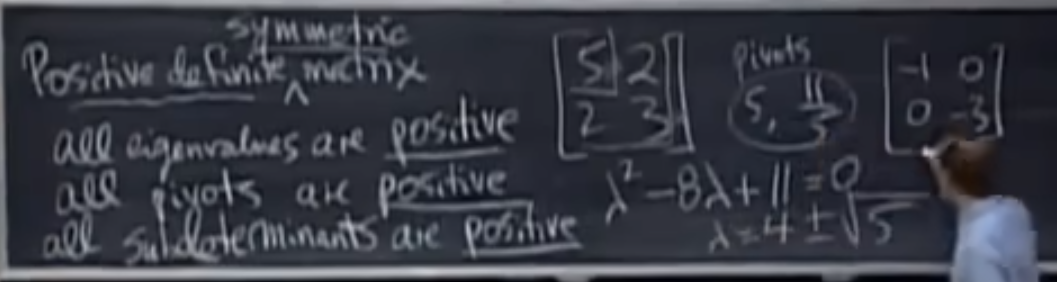 symmetric
Positive definite ^ matrix
all eigenvalues are positive
all pivots are positive
all subdeterminants are positive
[5 2]
[2 3]
pivots
5, 11/5
λ² - 8λ + 11 = 0
λ = 4 ± √5
[-1 0]
[0 -3]